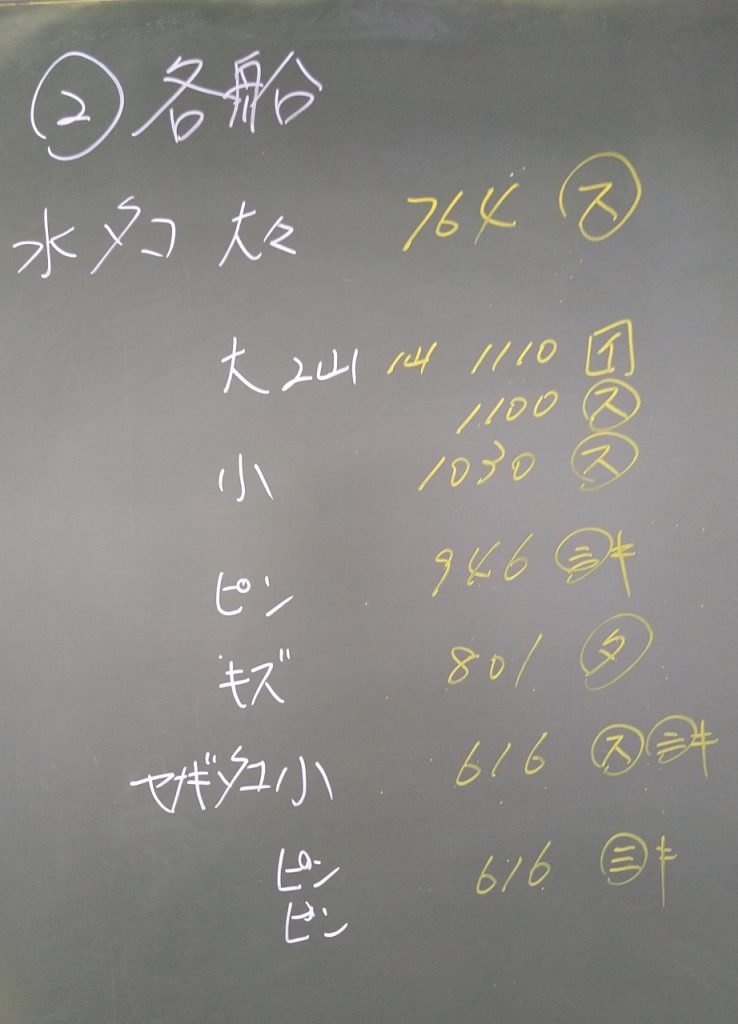 ② 各船
水タコ 大々 764 ㋜
大 2山 1山 1110 イ
1100 ㋜
小 1030 ㋜
ピン 946 ㊂キ
キズ 801 ㋟
ヤナギタコ小 616 ㋜ ㊂キ
ピン 616 ㊂キ
ピン